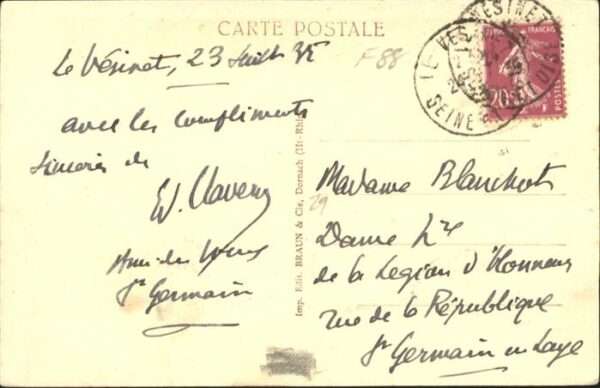 CARTE POSTALE
Le Vésinet, 23 Juillet 35
avec les compliments
sincères de
Ami des
St Germain
F88
29
Imp. Edit. BRAUN & Cie, Dornach (Ht-Rhin)
LE VESINET
SEINE ET OISE
FRANÇAISE
20c
POSTES
Madame Blanchot
Dame
de la Legion d'Honneur
rue de la République
St Germain en Laye